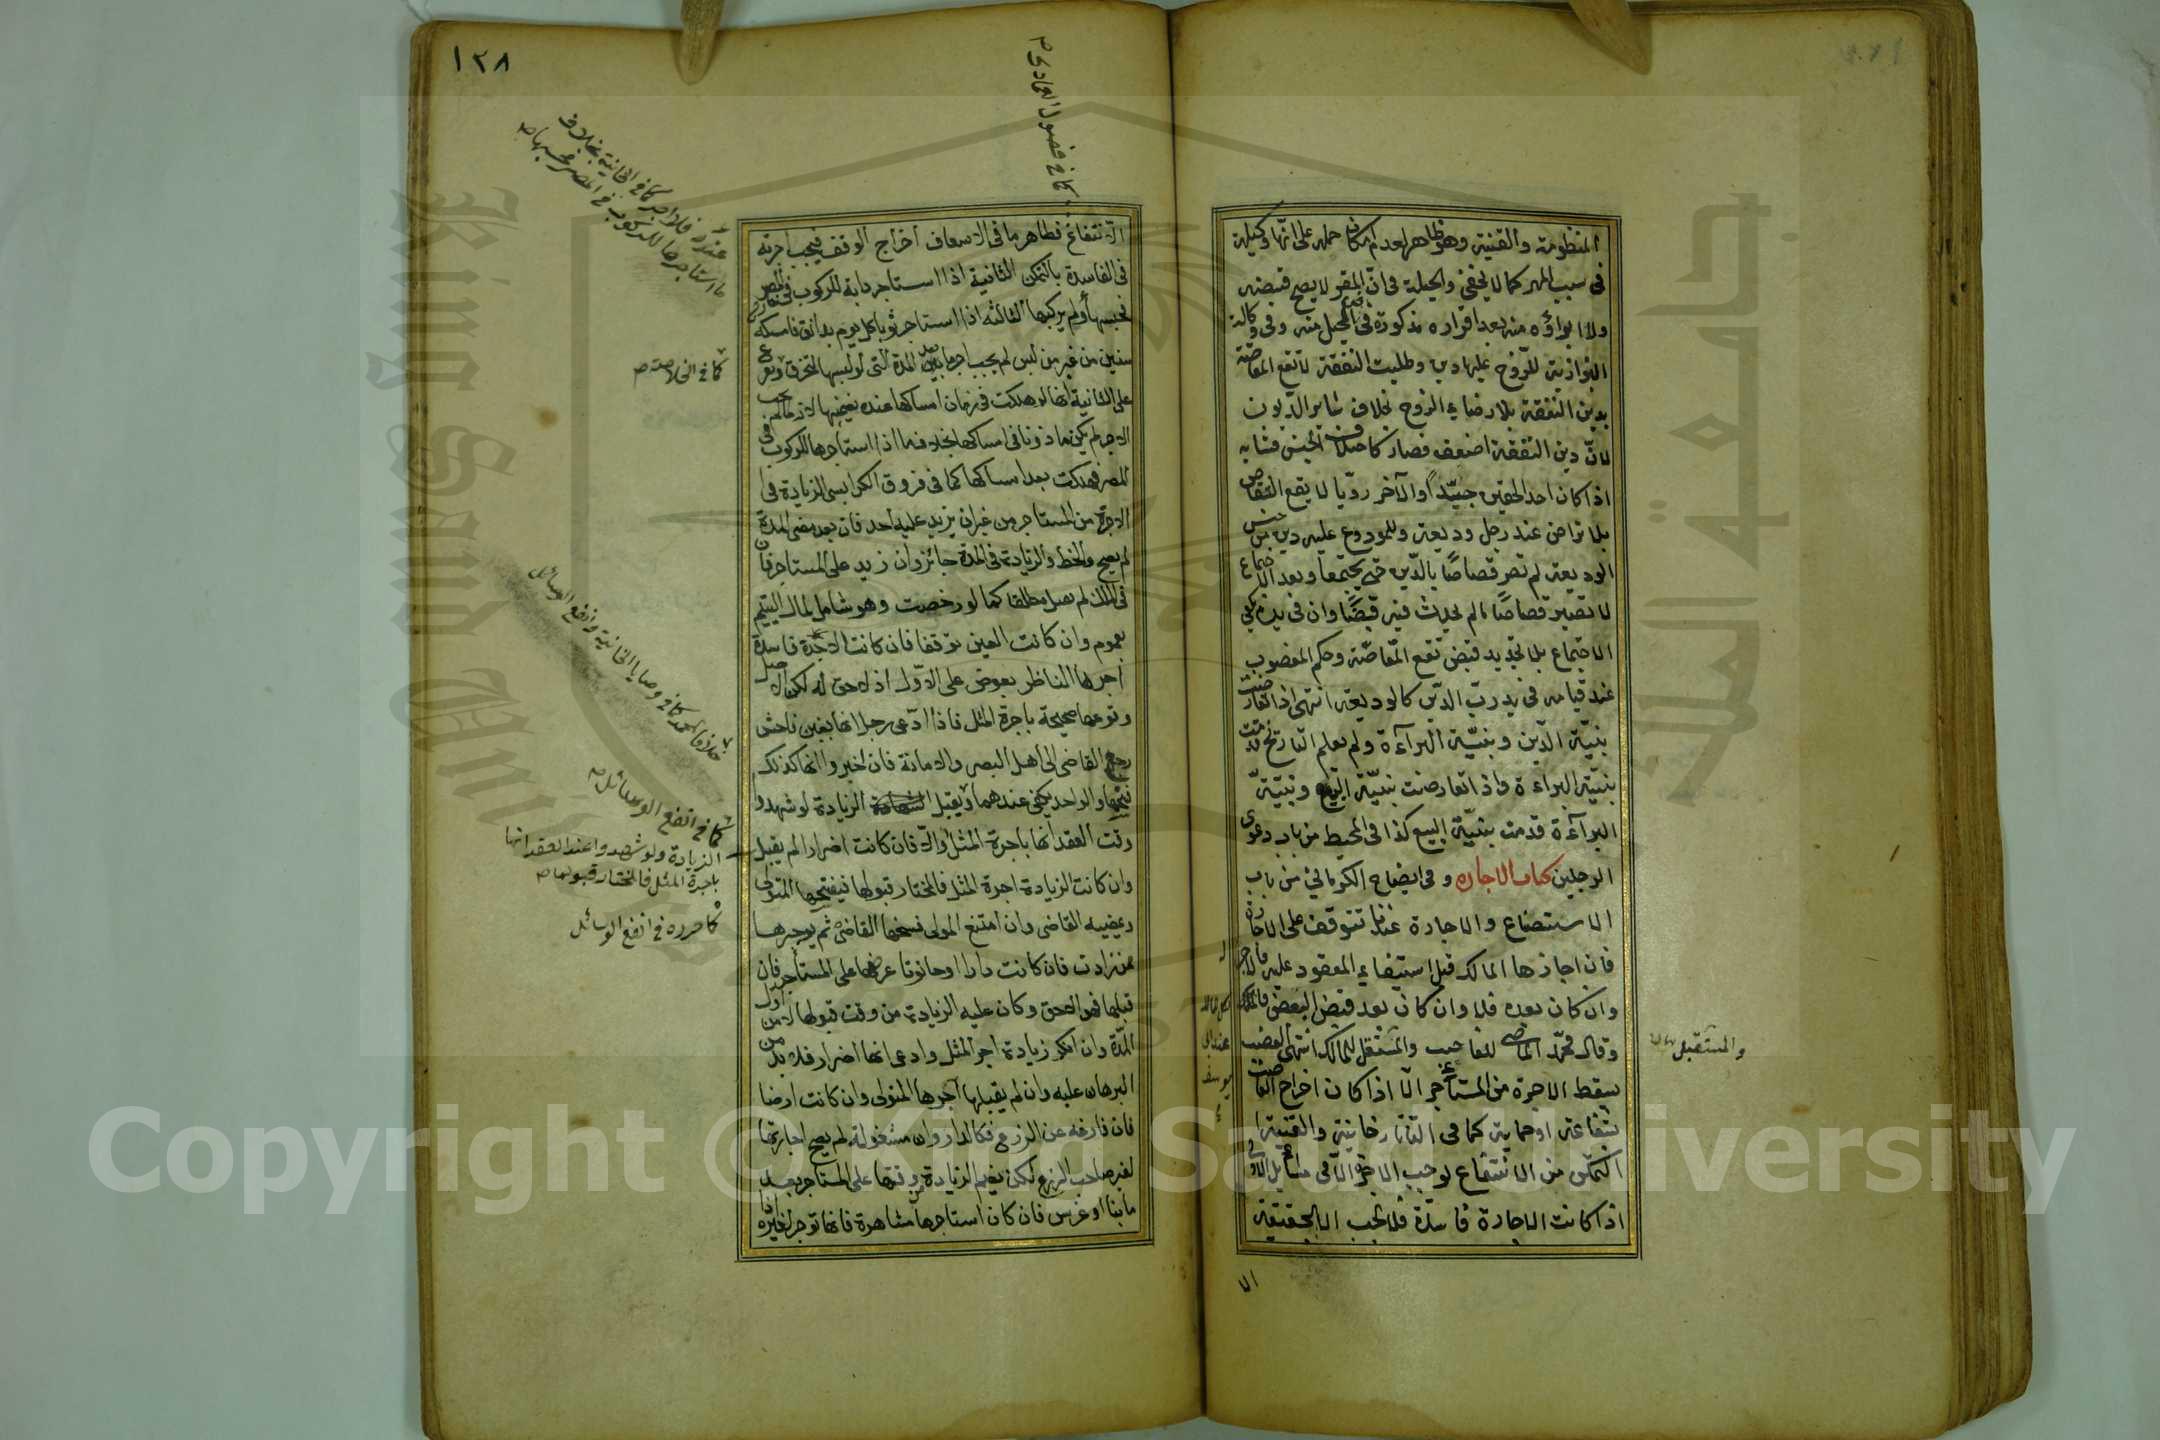 المنظومة والقنية وهو ظاهر لعدم امكان حمله على انها وكيلة
في سبب المهر كما لا يخفى والحيلة في ان المقر لا يصح قبضه
ولا ابراؤه منه بعد اقراره مذكورة في فن الحيل منه وفي وكالة
البزازية للزوج عليها دين وطلبت النفقة لا تقع المقاصة
بدين النفقة بلا رضاء الزوج بخلاف سائر الديون
لان دين النفقة اضعف فصار كاختلاف الجنس فشابه
اذا كان احد الحقين جيدا والآخر رديا لا يقع التقاص
بلا تراض عند رجل وديعة وللمودع عليه دين من جنس
الوديعة لم تصر قصاصا بالدين حتى يجتمعا وبعد الاجتماع
لا تصير قصاصا ما لم يحدث فيه قبضا وان في يده يكفي
الاجتماع بلا تجديد قبض تقع المقاصة وحكم المغصوب
عند قيامه في يد رب الدين كالوديعة انتهى اذا تعارضت
بنية الدين وبنية البراءة ولم يعلم التاريخ قدمت
بنية البراءة واذا تعارضت بنية البيع وبنية
البراءة قدمت بنية البيع كذا في المحيط من باب دعوى
الرجلين كتاب الاجارة وفي ايضاح الكرماني من باب
الاستصناع والاجارة عندنا تتوقف على الاجازة
فان اجازها المالك قبل استيفاء المعقود عليه فالاجرة له
وان كان بعده فلا وان كان بعد قبض البعض فالكل للمالك
عند ابي
يوسف
وقال محمد الماضي للغاصب والمستقبل للمالك انتهى الغصب
والمستقبل
يسقط الاجرة عن المستأجر الا اذا كان اخراج الغاصب
بشفاعة او حماية كما في التاتارخانية والقنية
التمكن من الانتفاع يوجب الاجرة الا في مسائل الاولى
اذا كانت الاجارة فاسدة فلا تجب الا بحقيقة
الا
١٢٨
كما في فصول العمادي م
الانتفاع فظاهر ما في الاسعاف اخراج الوقف فيجب اجرته
في الفاسدة بالتمكن الثانية اذا استاجر دابة للركوب في خارج المصر
فحبسها ولم يركبها الثالثة اذا استاجر ثوبا كل يوم بدانق فامسكه
سنين من غير من لبس لم يجب اجر ما بعد المدة التي لو لبسها لتخرق وتفرع
على الثانية انها لو هلكت في زمان امساكها عنده يضمنها لانه لما لم يجب
الاجر لم يكن ماذونا في امساكها بخلاف ما اذا استاجرها للركوب في
المصر فهلكت بعد امساكها كما في فروق الكرابيسي الزيادة في
الاجرة من المستاجر من غير ان يزيد عليه احد فان بعد مضي المدة
لم يصح والحط والزيادة في المدة جائز وان زيد على المستاجر فان
في الملك لم يقبل مطلقا كما لو رخصت وهو شامل لمال اليتيم
بعمومه وان كانت العين توقفا فان كانت الاجرة فاسدة
اجرها الناظر بعوض على الاول اذ لا حق له لكن الاصل
وقوعها صحيحة باجرة المثل فاذا ادعى رجل انها بغبن فاحش
رجع القاضي الى اهل البصر والامانة فان اخبروا انها كذلك
فسخها والواحد يكفي عندهما ويقبل الزيادة لو شهدوا
وقت العقد انها باجرة المثل والا فان كانت اضرارا لم يقبل
وان كانت الزيادة اجرة المثل فالمختار قبولها فيفسخها المتولي
ويمضيه القاضي وان امتنع المولى فسخها القاضي ثم يوجرها
ممن زادت فان كانت دارا او حانوتا عرضها على المستأجر فان
قبلها فهو الاحق وكان عليه الزيادة من وقت قبولها لا من اول
المدة وان انكر زيادة اجر المثل وادعى انها اضرار فلا بد من
البرهان عليه وان لم يقبلها آجرها المتولي وان كانت ارضا
فان فارغه عن الزرع فكالدار وان مشغولة لم يصح اجارتها
لغير صاحب الزرع لكن يضم الزيادة من وقتها على المستاجر بعد
ما بنا او غرس فان كان استاجرها مشاهرة فانها توجر لغيره اذا
عذر فلا اجر كما في الخانية بخلاف
ما استاجرها للركوب في المصر فحبسها م
كما في الخلاصة م
خلافا لمحمد كما في وصايا الخانية وانفع الوسائل
كما في انفع الوسائل م
الزيادة ولو شهدوا عند العقد انها
باجرة المثل فالمختار قبولها م
كما حرره في انفع الوسائل
Copyright © King Saud University
King Saud University
جامعة الملك سعود